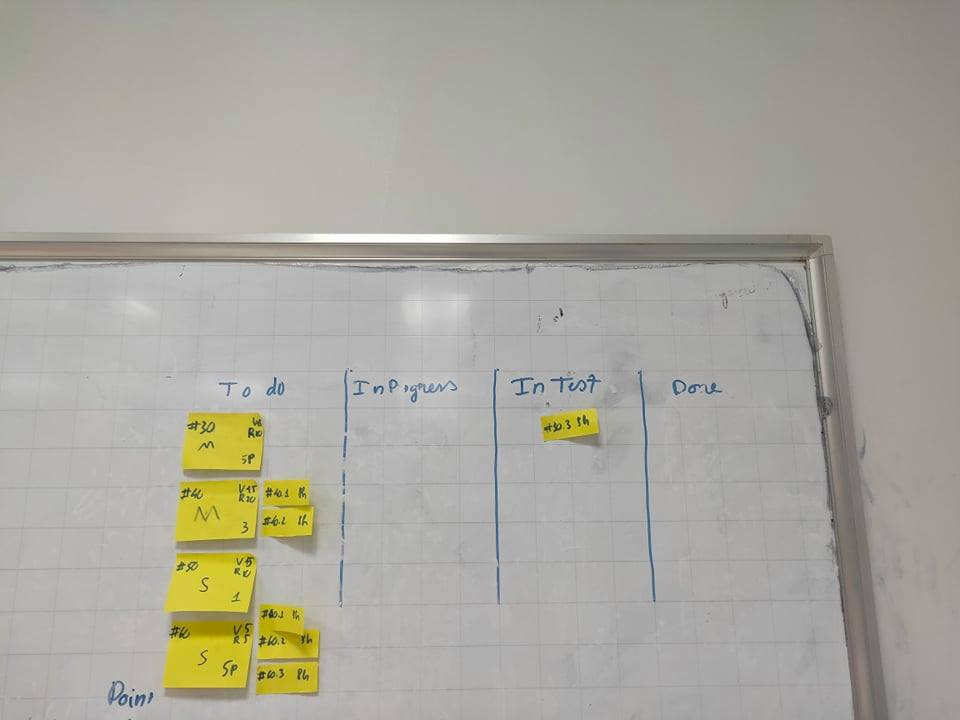 To do
InPrgress
In Test
Done
#30
R20
M
5P
#30.3 3h
#40
V15
R20
M
3
#40.1 8h
#40.2 1h
#50
V5
R10
S
1
#60
V5
R5
S
5P
#60.2 3h
#60.3 8h
Point